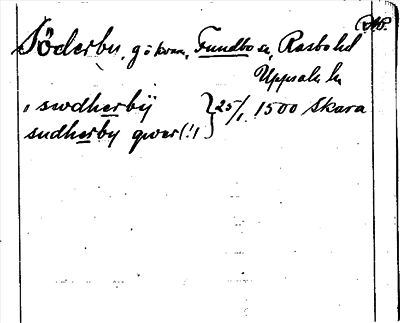 RAP.
Söderby, gd o kvarn, Funbo sn, Rasbo hd
Uppsala län
i swdherbij } 25/1 1500 Skara
sudherby qwer(!)